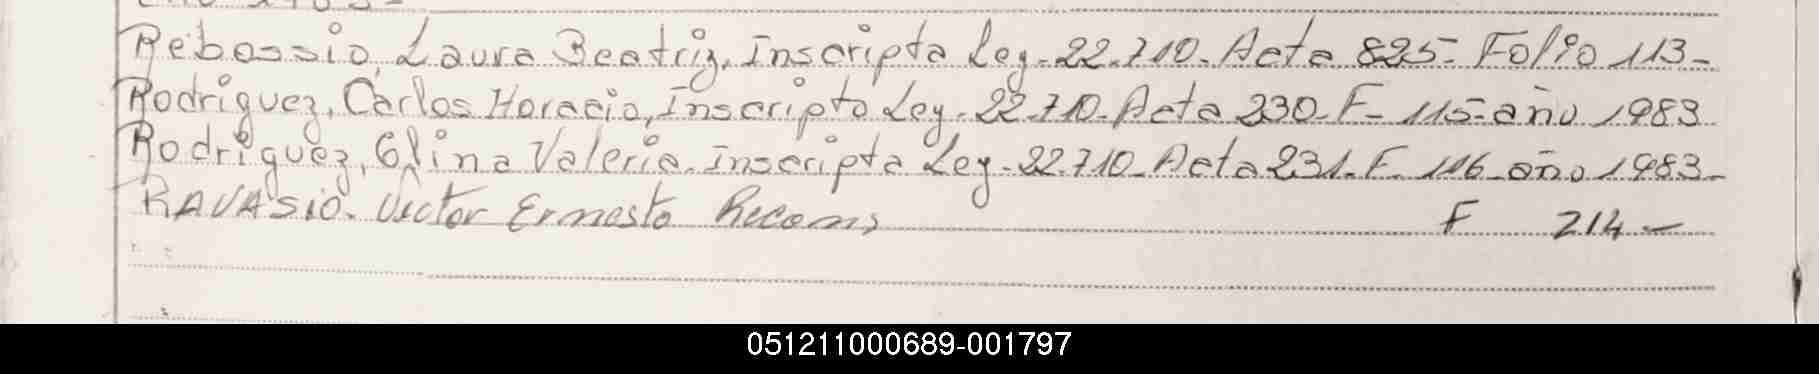 Rebossio, Laura Beatriz, Inscripta Ley-22.710-Acta 825-Folio 113-
Rodriguez, Carlos Horacio, Inscripto Ley-22.710-Acta 230-F- 115-año 1983
Rodriguez, Glina Valeria. inscripta Ley-22.710-Acta 231.F. 116-año 1983-
RAVASiO. Victor Ernesto Recons F 214-
051211000689-001797